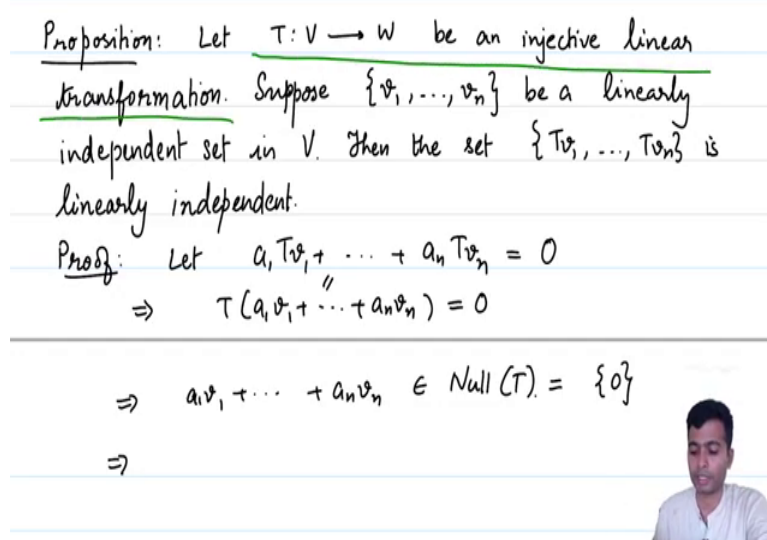 Proposition: Let T: V ⟶ W be an injective linear
transformation. Suppose {v₁, ..., vₙ} be a linearly
independent set in V. Then the set {Tv₁, ..., Tvₙ} is
linearly independent.
Proof: Let a₁Tv₁ + ··· + aₙTvₙ = 0
〃
⇒ T(a₁v₁ + ··· + aₙvₙ) = 0
⇒ a₁v₁ + ··· + aₙvₙ ∈ Null(T). = {0}
⇒